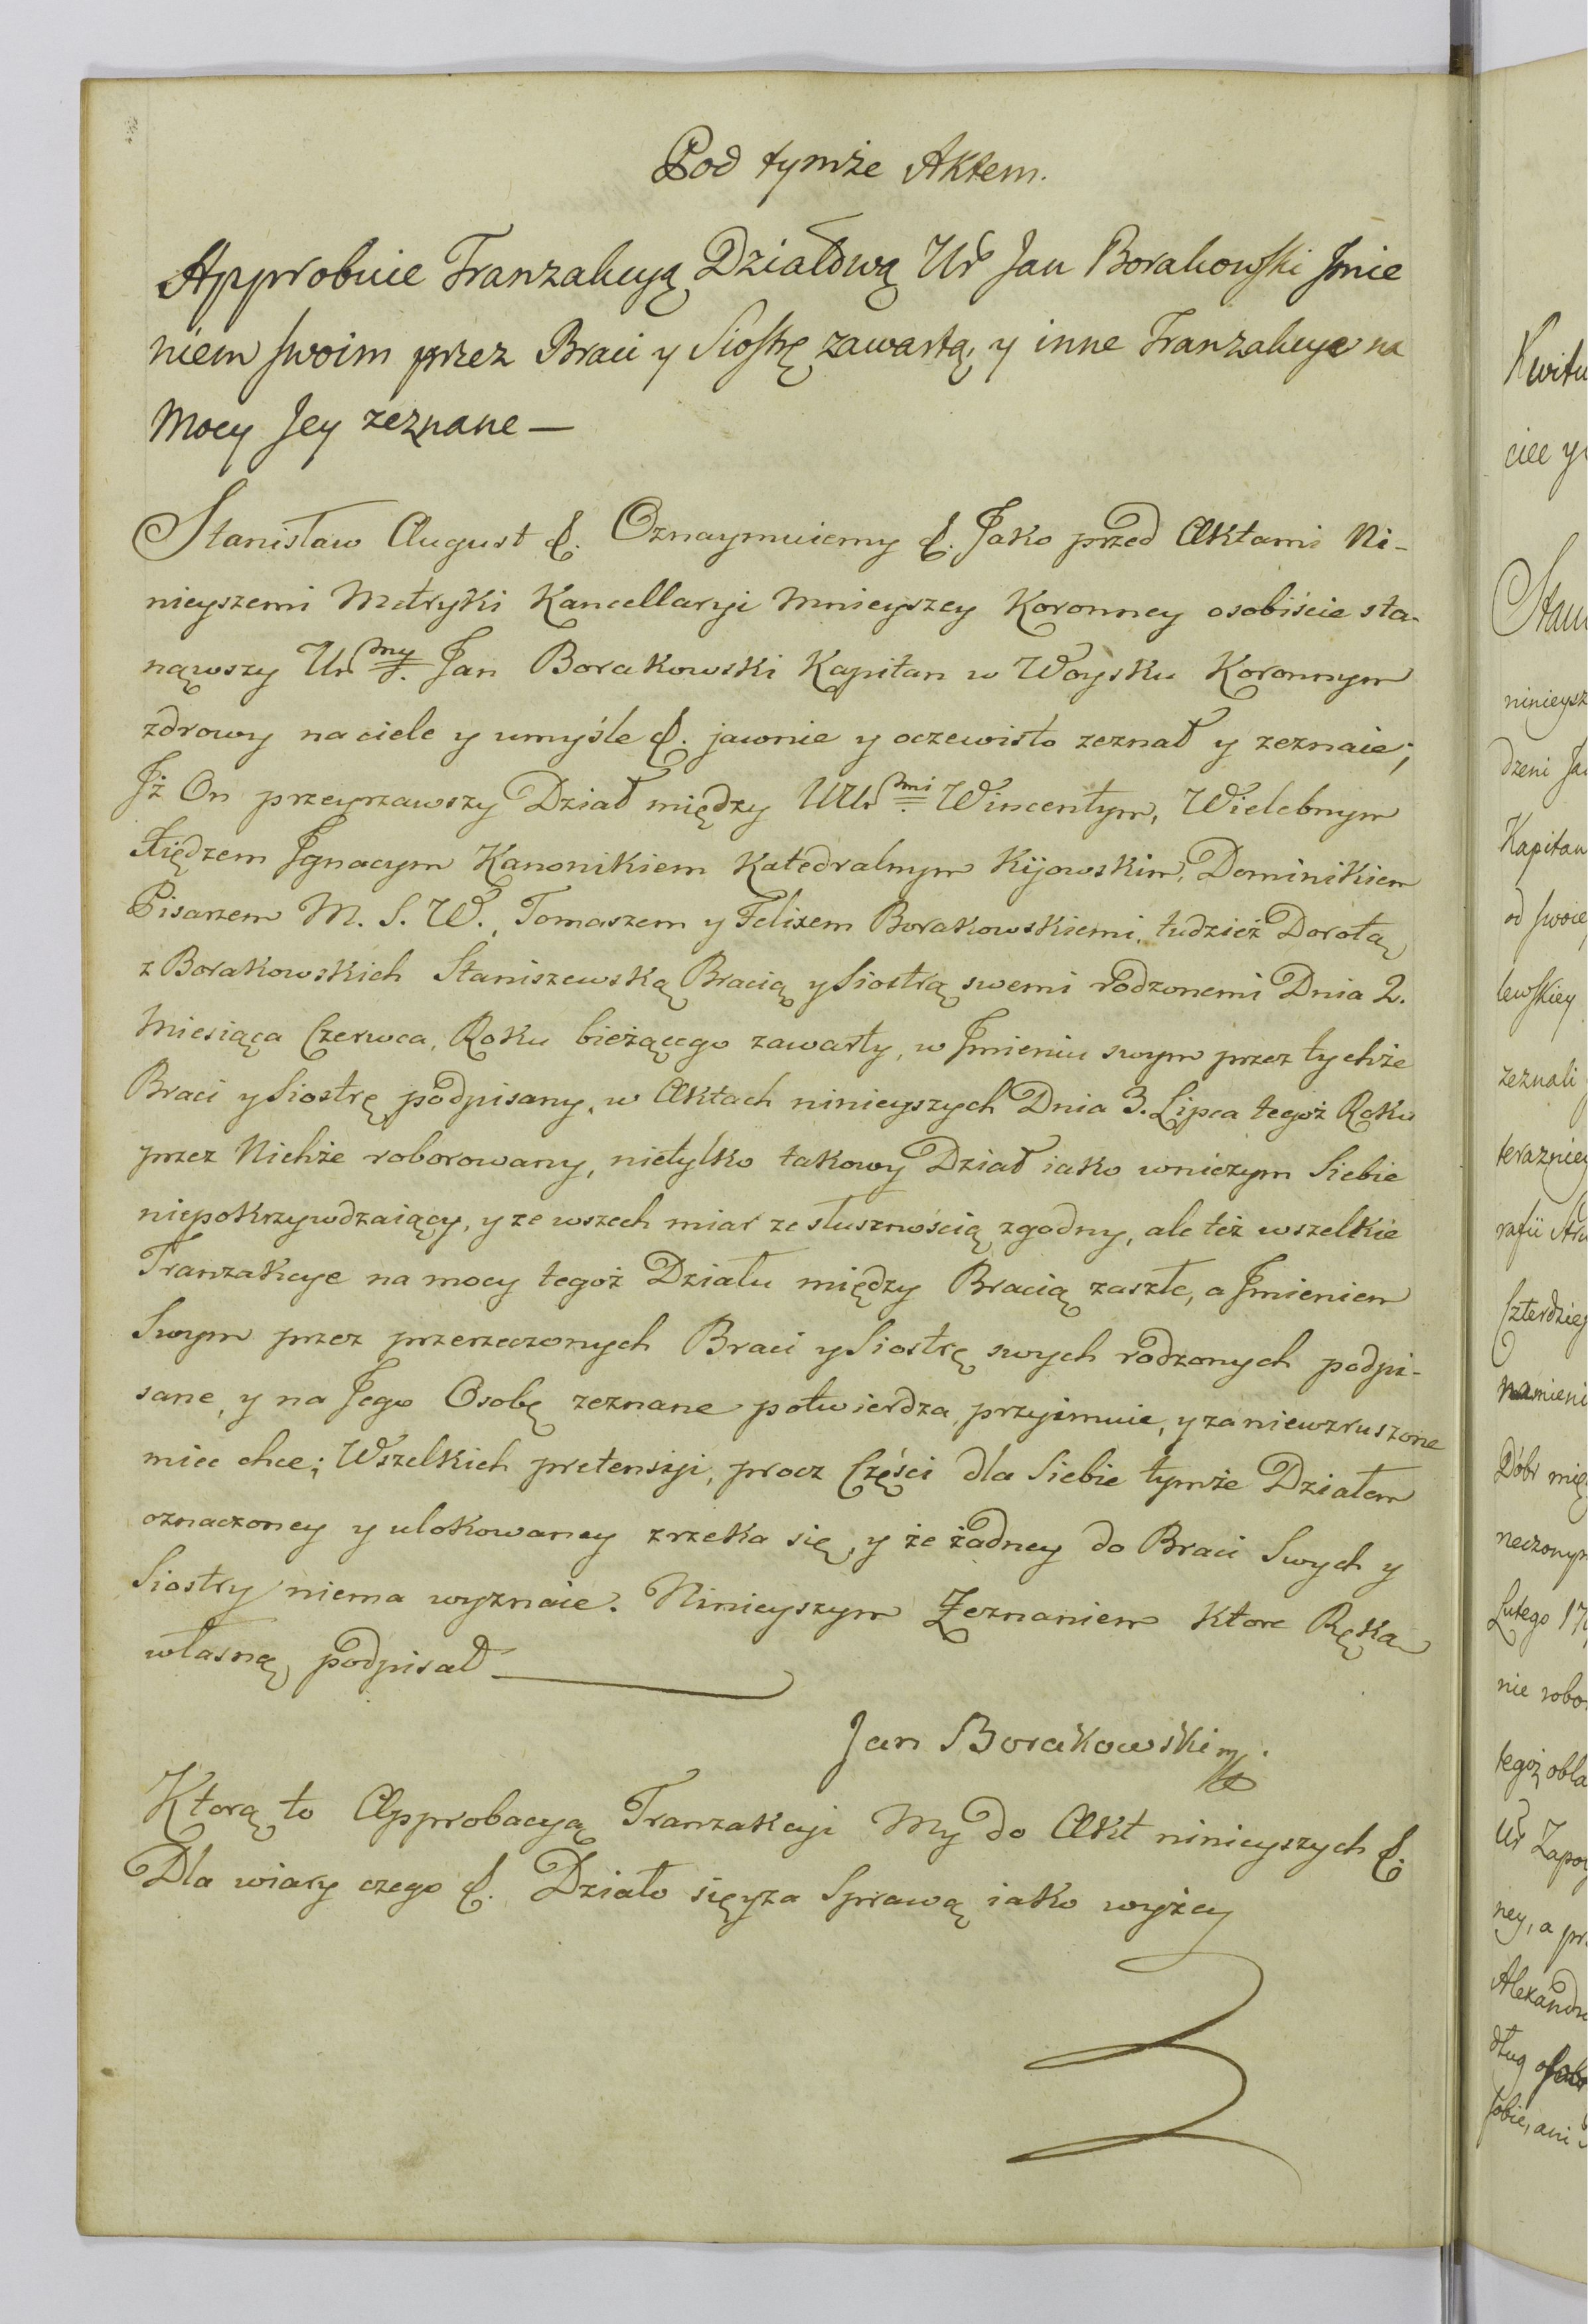 Pod tymże Aktem.
Approbuie Tranzakcyą Działową Ur Jan Borakowski Jmie
niem swoim przez Braci y Siostrę zawartą, y inne Tranzakcye na
Mocy Jey zeznane —
Stanisław August &. Oznaymuiemy &. Jako przed Aktami Ni-
nieyszemi Metryki Kancellaryi Mnieyszey Koronney osobiście sta-
nąwszy Ur̃ny. Jan Borakowski Kapitan w Woysku Koronnym
zdrowy na ciele y umyśle &. jawnie y oczewisto zeznał y zeznaie;
Jż On przeyrzawszy Dział między UUr̃mi Wincentym, Wielebnym
Xiędzem Jgnacym Kanonikiem Katedralnym Kijowskim, Dominikiem
Pisarzem M. S. W., Tomaszem y Felixem Borakowskiemi, tudzież Dorotą
z Borakowskich Staniszewską Bracią y Siostrą swemi rodzonemi Dnia 2.
Miesiąca Czerwca, Roku bieżącego zawarty, w Jmieniu swym przez tychże
Braci y Siostrę podpisany, w Aktach ninieyszych Dnia 3. Lipca tegoż Roku
przez Nichże roborowany, nietylko takowy Dział iako wniczym Siebie
niepokrzywdzaiący, y ze wszech miar ze słusznością zgodny, ale też wszelkie
Tranzakcye na mocy tegoż Działu między Bracią zaszłe, a Jmieniem
Swym przez przerzeczonych Braci y Siostrę swych rodzonych podpi-
sane, y na Jego Osobę zeznane potwierdza, przyimuie, y za niewzruszone
miec chce; Wszelkich pretensyi, procz Części dla Siebie tymże Działem
oznaczoney y ulokowaney zrzeka się, y że żadney do Braci Swych y
Siostry niema wyznaie. Ninieyszym Zeznaniem Ktore Ręką
własną podpisał
Jan Borakowski mp.
Ktorą to Approbacyą Tranzakcyi My do Akt ninieyszych &.
Dla wiary czego &. Działo się y za Sprawą iako wyżey
Kwitu
Staw
ninieysz
dzeni Ja
Kapitan
od swoie
lewskiey
zeznali
teraźniey
Czterdzie
Dóbr mię
neczonym
Lutego 17
nie robo
tegoż obla
Ur Zapo
ney, a pr
Alexandr
dług
sobie, ani